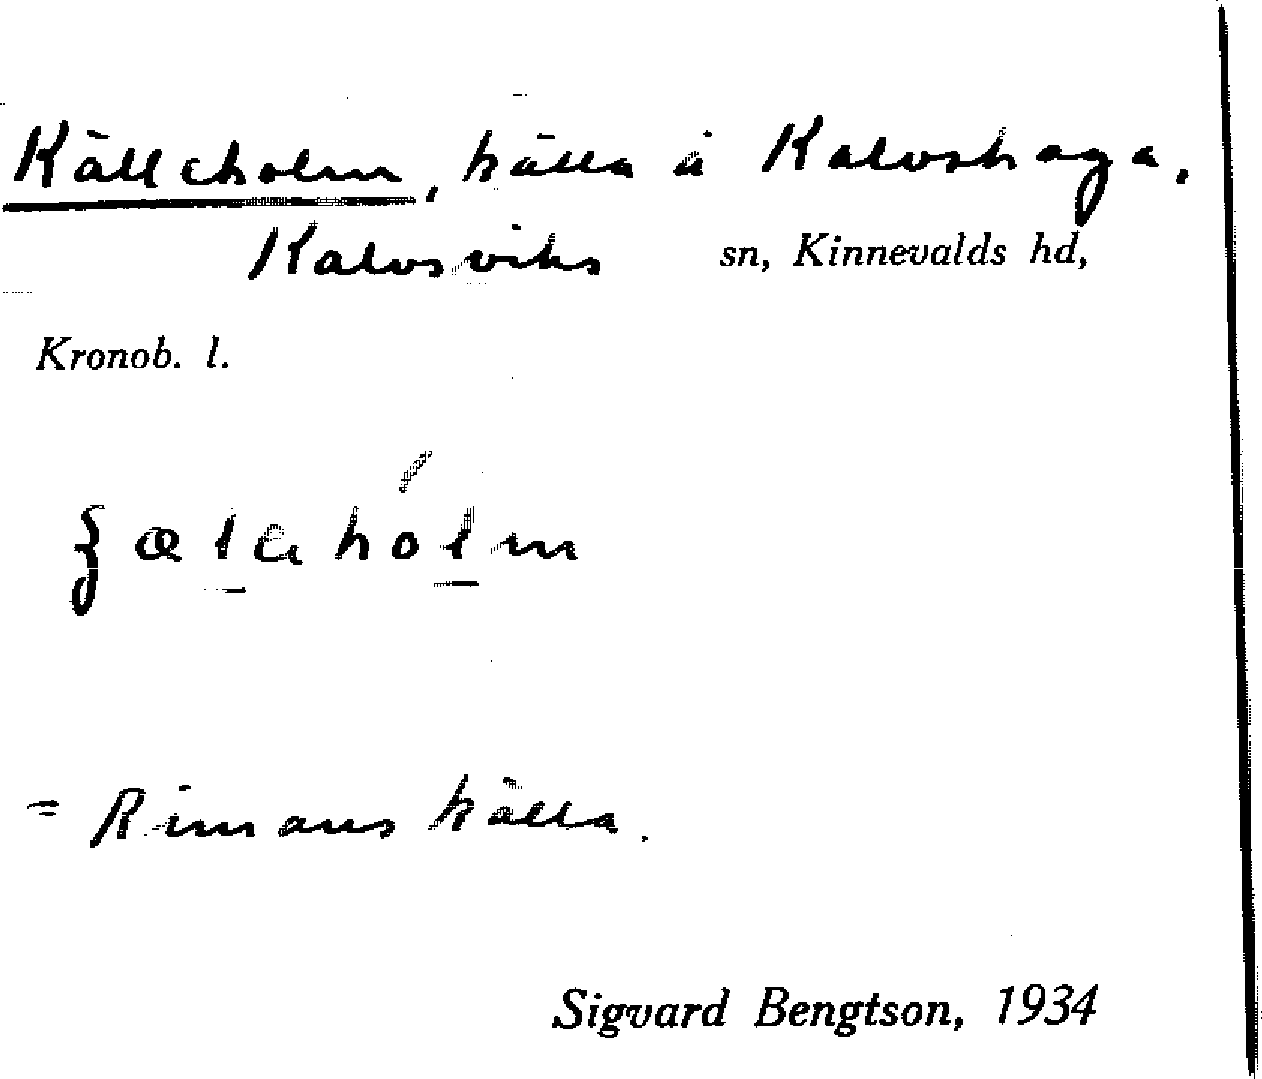 Källeholm, källa å Kalvshaga,
Kalvsviks sn, Kinnevalds hd,
Kronob. l.
= Rimans källa.
Sigvard Bengtson, 1934